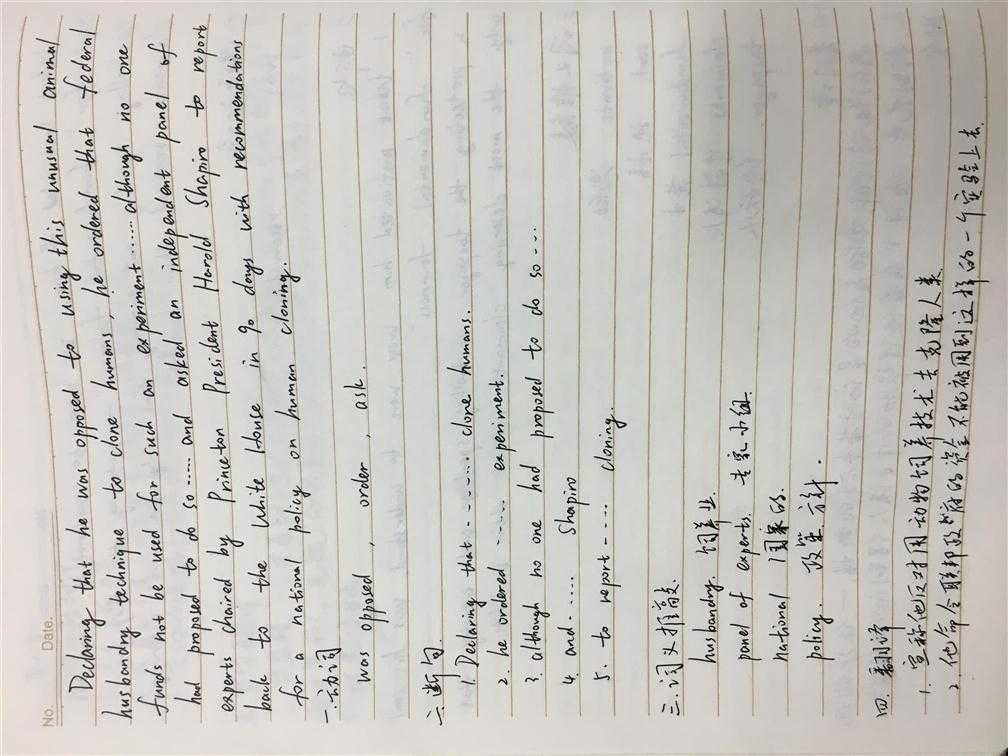 No. Date.
Declaring that he was opposed to using this unusual animal
husbandry technique to clone humans, he ordered that federal
funds not be used for such an experiment......although no one
had proposed to do so......and asked an independent panel of
experts chaired by Princeton President Harold Shapiro to report
back to the White House in 90 days with recommendations
for a national policy on human cloning.
一.动词
was opposed, order, ask.
二.断句
1. Declaring that ...... clone humans.
2. he ordered ...... experiment.
3. although no one had proposed to do so...
4. and ...... Shapiro
5. to report .... cloning.
三.词义推敲
husbandry. 饲养业.
panel of experts. 专家小组.
national 国家的.
policy. 政策方针.
四.翻译
1. 宣称他反对用动物饲养技术去克隆人类
2. 他命令联邦政府的资金不能被用到这样的一个实验上去.